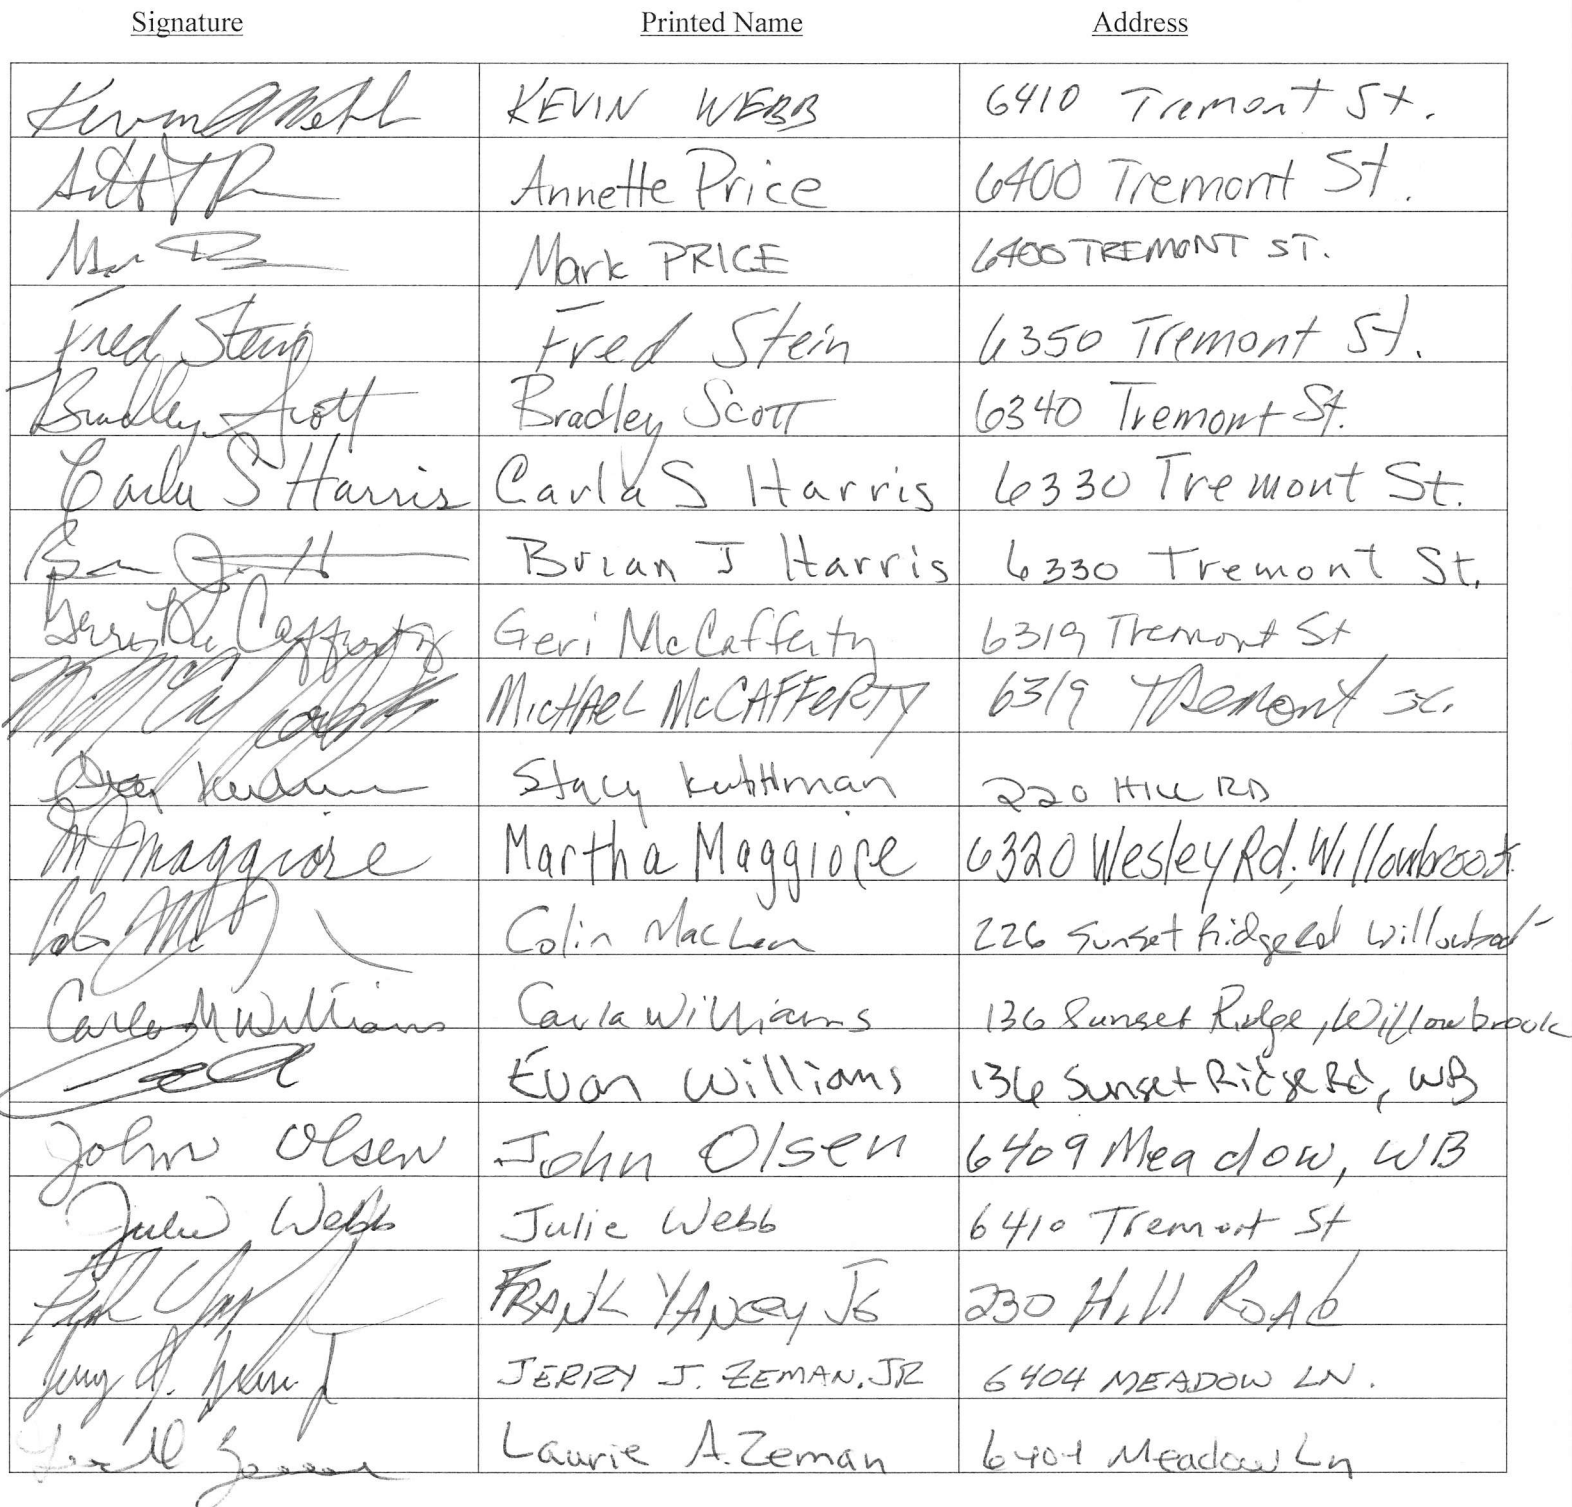 Signature Printed Name Address
Kevin Webb KEVIN WEBB 6410 Tremont St.
Annette Price 6400 Tremont St.
Mark PRICE 6400 TREMONT ST.
Fred Stein Fred Stein 6350 Tremont St.
Bradley Scott Bradley Scott 6340 Tremont St.
Carla S Harris Carla S Harris 6330 Tremont St.
Brian J Harris 6330 Tremont St.
Geri McCafferty 6319 Tremont St
MICHAEL McCAFFERTY 6319 Tremont St.
Stacy 220 HILL RD
M Maggiore Martha Maggiore 6320 Wesley Rd, Willowbrook
Colin MacLean 226 Sunset Ridge Rd Willowbrook
Carla M Williams Carla Williams 136 Sunset Ridge, Willowbrook
Evan Williams 136 Sunset Ridge Rd, WB
John Olsen John Olsen 6409 Meadow, WB
Julie Webb Julie Webb 6410 Tremont St
FRANK YANCEY JR 230 Hill ROAD
JERRY J. ZEMAN, JR 6404 MEADOW LN.
Laurie A. Zeman 6404 Meadow Ln